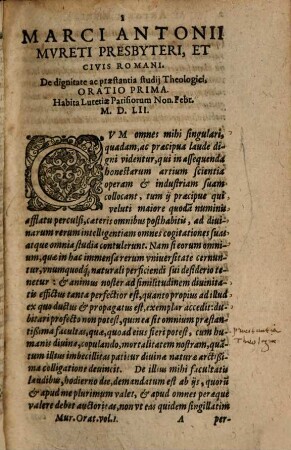 1
MARCI ANTONII
MVRETI PRESBYTERI, ET
CIVIS ROMANI.
De dignitate ac præstantia studij Theologici,
ORATIO PRIMA.
Habita Lutetiæ Parisiorum Non. Febr.
M. D. LII.
CVM omnes mihi singulari,
quadam, ac præcipua laude di
gni videntur, qui in assequenda
honestarum artium scientia
operam & industriam suam
collocant, tum ij præcipue qui
veluti maiore quodā numinis
afflatu perculsi, cæteris omnibus posthabitis, ad diui-
narum rerum intelligentiam omnes cogitationes suas
atque omnia studia contulerunt. Nam si eorum omni-
um, quæ in hac immensa rerum vniuersitate cernun-
tur, vnumquodq; naturali perficiendi sui desiderio te-
netur: & animus noster ad similitudinem diuinita-
tis effictus tanto perfectior est, quanto propius ad illud
ex quo ductus & propagatus est, exemplar accedit: du-
bitari profecto non potest, quin ea sit omnium præstan-
tißima facultas, quæ, quoad eius fieri potest, cum hu-
manis diuina, copulando, mortalitatem nostram, quā-
tum illius imbecillitas patitur diuina natura arctißi-
ma colligatione deuincit. De illius mihi facultatis
laudibus, hodierno die, demandatum est ab ijs, quorū
& apud me plurimum valet, & apud omnes peræque
valere debet auctoritas, non vt eas quidem singillatim
Mur. Orat. vol. 1. A per-
Theologiæ